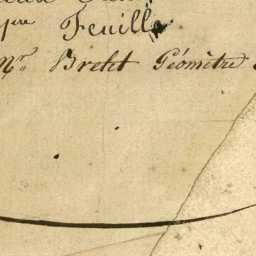 1ère Feuille
Mr. Bretet Géomètre